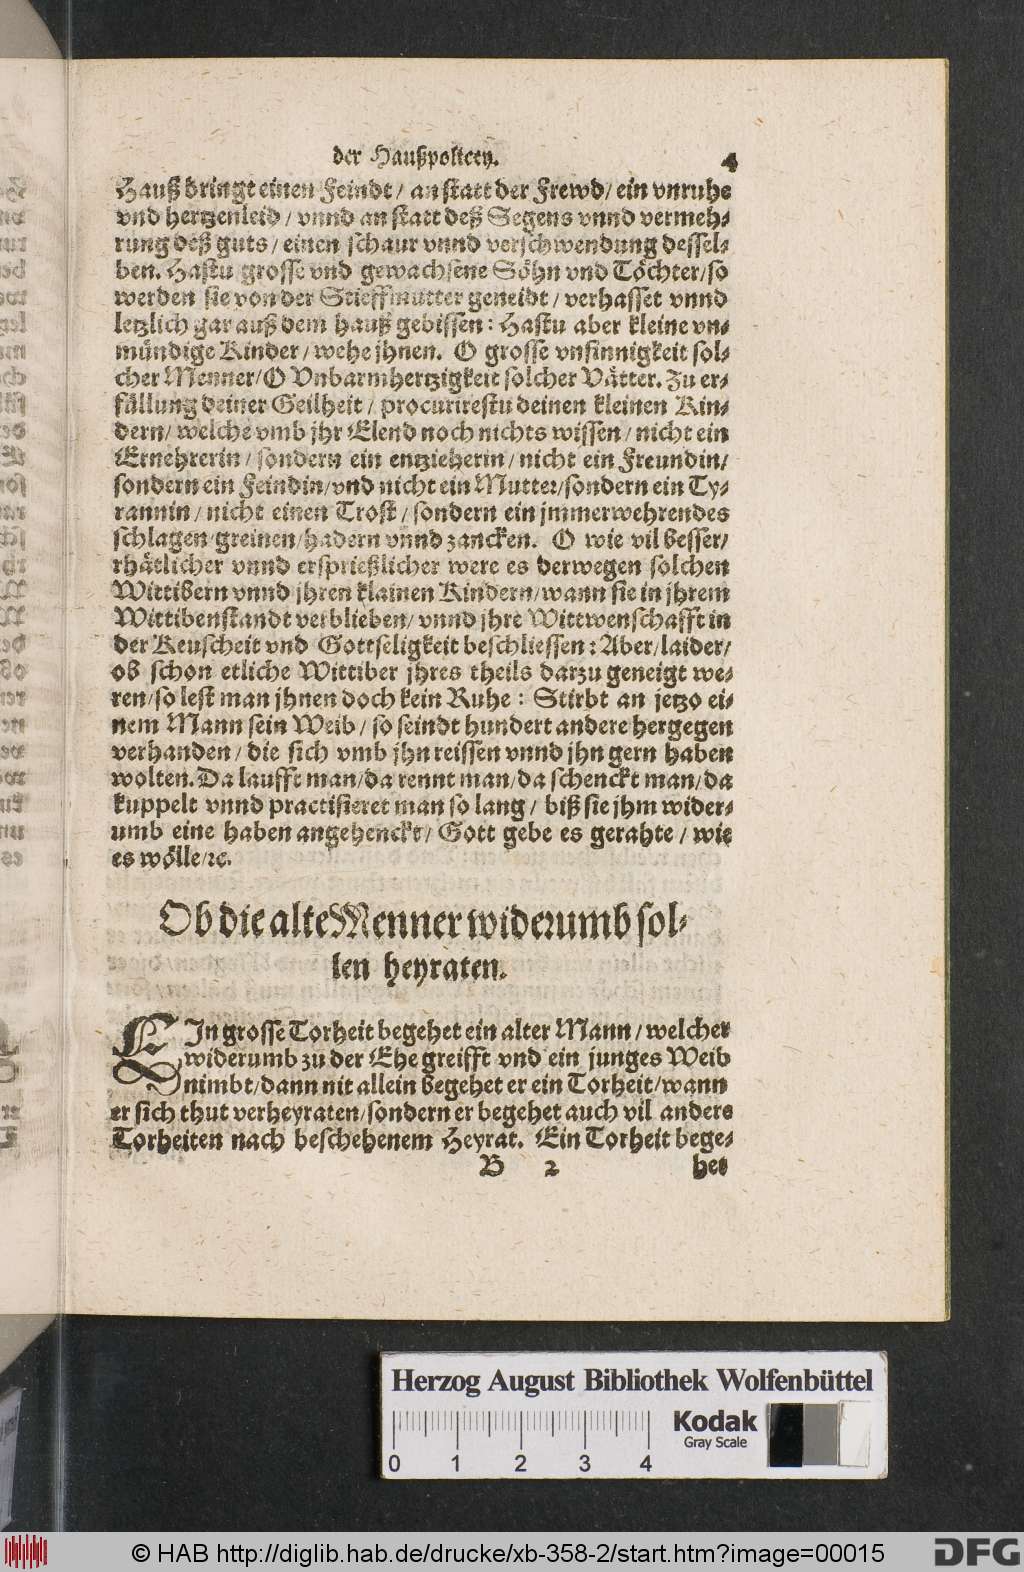 der Haußpolicey. 4
Hauß bringt einen Feindt / an statt der Frewd / ein vnruhe
vnd hertzenleid / vnnd an statt deß Segens vnnd vermeh-
rung deß guts / einen schaur vnnd verschwendung dessel-
ben. Hastu grosse vnd gewachsene Söhn vnd Töchter / so
werden sie von der Stieffmutter geneidt / verhasset vnnd
letzlich gar auß dem hauß gebissen: Hastu aber kleine vn-
mündige Kinder / wehe jhnen. O grosse vnsinnigkeit sol-
cher Menner / O Vnbarmhertzigkeit solcher Vätter. Zu er-
fällung deiner Geilheit / procurirestu deinen kleinen Kin-
dern / welche vmb jhr Elend noch nichts wissen / nicht ein
Ernehrerin / sondern ein entzieherin / nicht ein Freundin /
sondern ein Feindin / vnd nicht ein Mutter / sondern ein Ty-
rannin / nicht einen Trost / sondern ein jmmerwehrendes
schlagen / greinen / hadern vnnd zancken. O wie vil besser /
rhätlicher vnnd ersprießlicher were es derwegen solchen
Wittibern vnnd jhren klainen Kindern / wann sie in jhrem
Wittibenstandt verblieben / vnnd jhre Wittwenschafft in
der Keuscheit vnd Gottseligkeit beschliessen: Aber / laider /
ob schon etliche Wittiber jhres theils darzu geneigt we-
ren / so lest man jhnen doch kein Ruhe: Stirbt an jetzo ei-
nem Mann sein Weib / so seindt hundert andere hergegen
verhanden / die sich vmb jhn reissen vnnd jhn gern haben
wolten. Da laufft man / da rennt man / da schenckt man / da
kuppelt vnnd practisieret man so lang / biß sie jhm wider-
umb eine haben angehenckt / Gott gebe es gerahte / wie
es wölle / ꝛc.
Ob die alte Menner widerumb sol-
len heyraten.
EIn grosse Torheit begehet ein alter Mann / welcher
widerumb zu der Ehe greifft vnd ein junges Weib
nimbt / dann nit allein begehet er ein Torheit / wann
er sich thut verheyraten / sondern er begehet auch vil andere
Torheiten nach beschehenem Heyrat. Ein Torheit bege-
B 2 het
Herzog August Bibliothek Wolfenbüttel
0 1 2 3 4
Kodak
Gray Scale
© HAB http://diglib.hab.de/drucke/xb-358-2/start.htm?image=00015
DFG